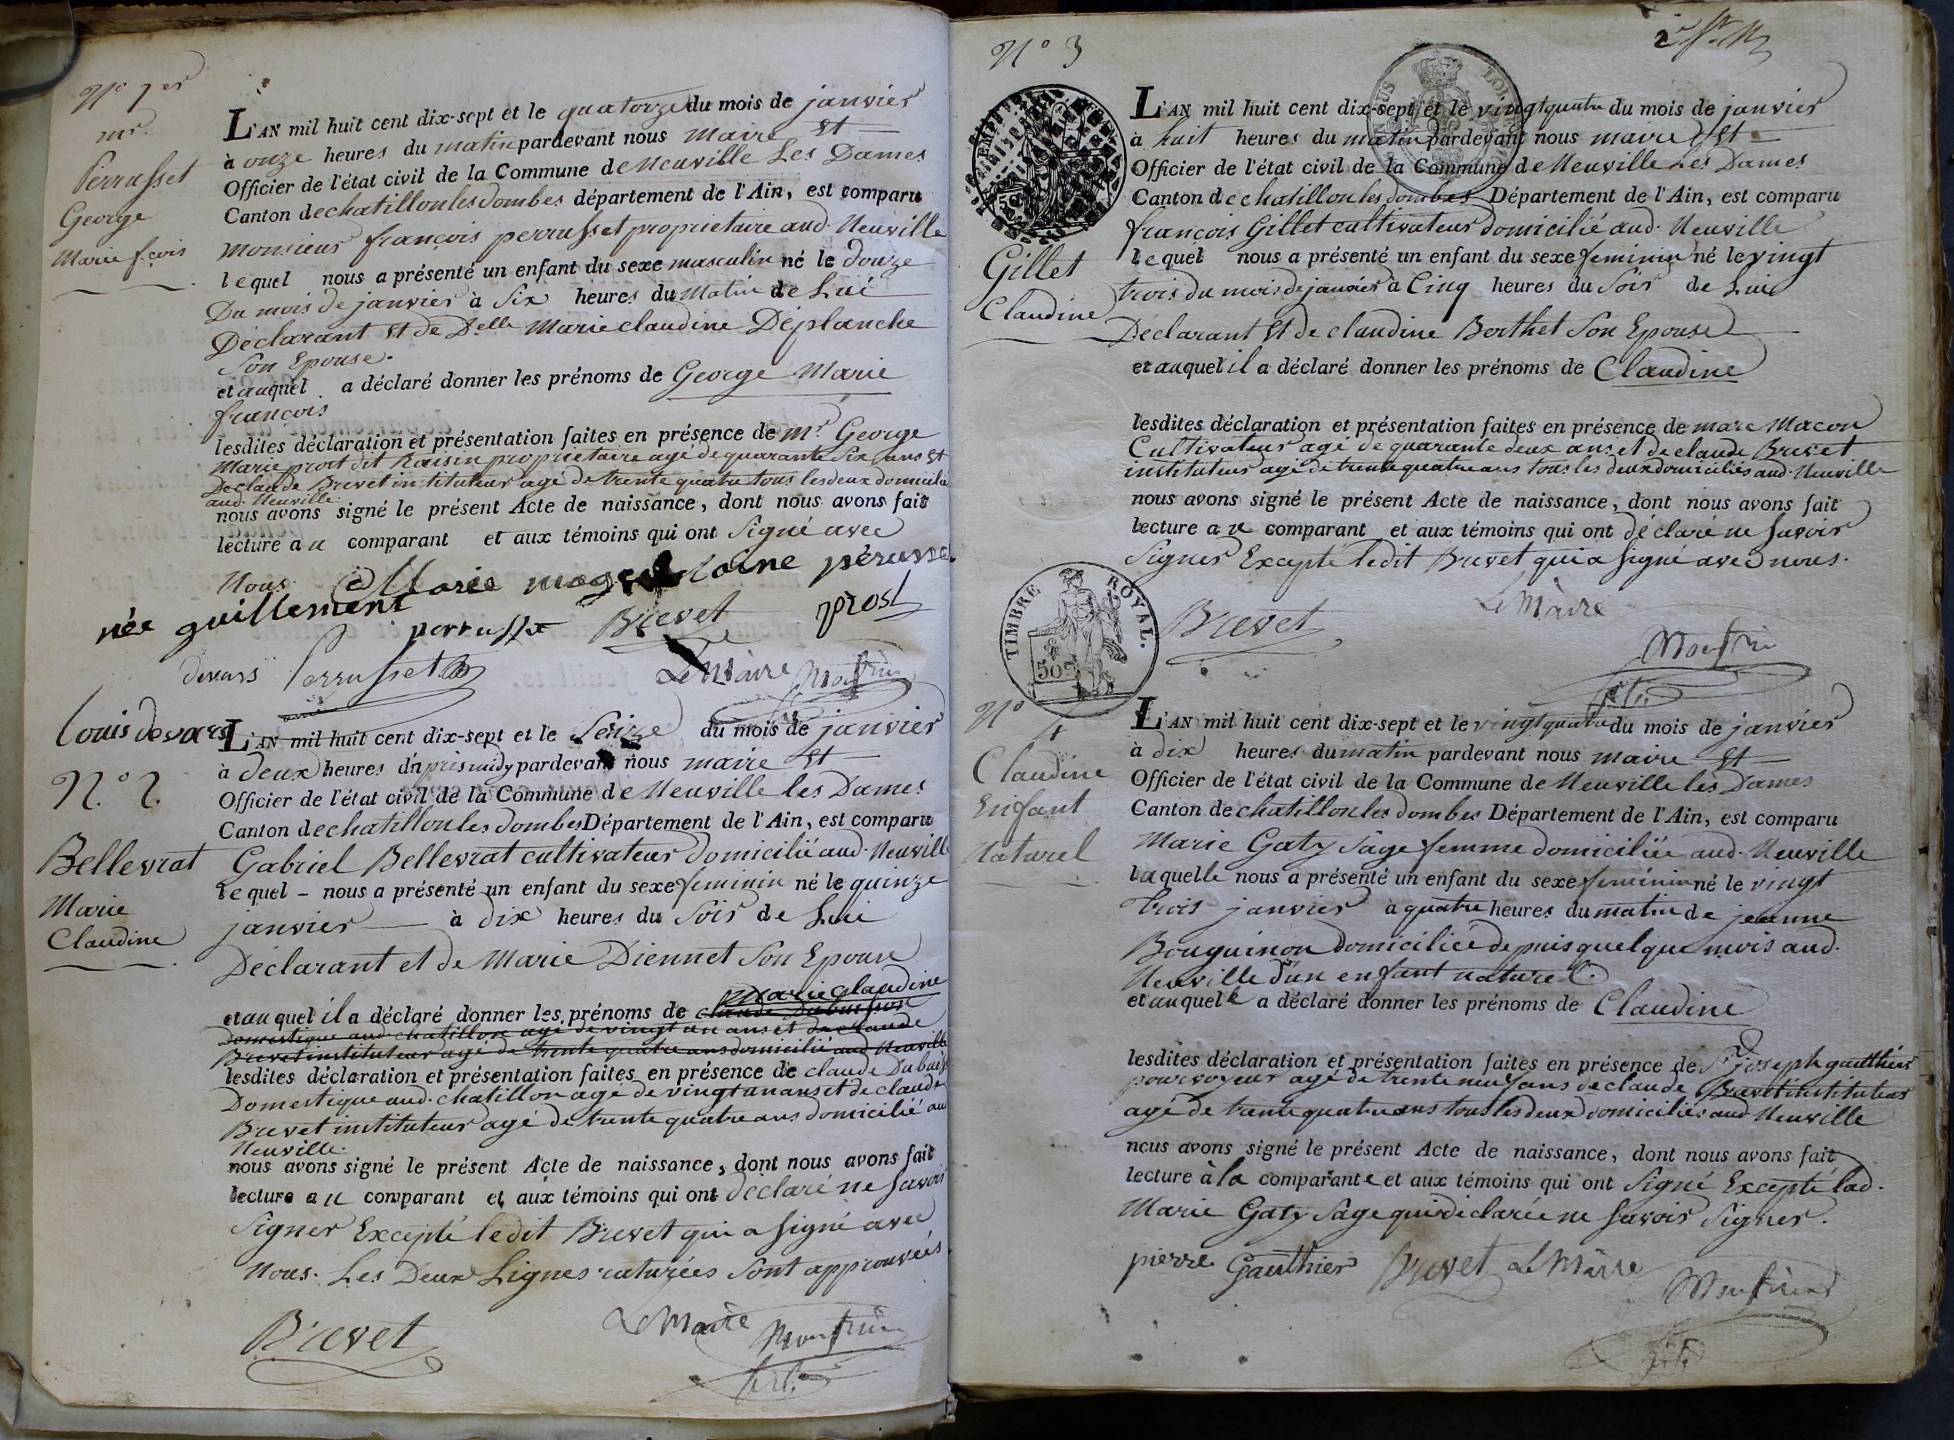 N° 1er
mr.
Perrusset
George
Marie f.çois
L'AN mil huit cent dix-sept et le quatorze du mois de janvier
à onze heures du matin pardevant nous maire Et
Officier de l'état civil de la Commune de Neuville Les Dames
Canton de chatillon les dombes département de l'Ain, est comparu
Monsieur françois perrusset proprietaire aud. Neuville
lequel nous a présenté un enfant du sexe masculin né le douze
Du mois de janvier à Six heures du Matin de Lui
Déclarant Et de Delle Marie claudine Déplanche
Son Epouse.
et auquel a déclaré donner les prénoms de George Marie
françois
lesdites déclaration et présentation faites en présence de mr George
Marie prost dit Raisin proprietaire agé de quarante Six ans Et
De claude Brevet instituteur agé de trente quatre tous les deux domicilié
aud. Neuville.
nous avons signé le présent Acte de naissance, dont nous avons fait
lecture au comparant et aux témoins qui ont Signé avec
Nous. Marie magdelaine pérusset
née guillement
perrusset Brevet prost
devars Perrusset Le Maire Monfrin
Louis devars
N°. 2.
Bellevrat
Marie
Claudine
L'AN mil huit cent dix-sept et le Seize du mois de janvier
à deux heures d'après midy pardevant nous maire Et
Officier de l'état civil de la Commune de Neuville les Dames
Canton de chatillon les dombes Département de l'Ain, est comparu
Gabriel Bellevrat cultivateur domicilié aud. Neuville
lequel nous a présenté un enfant du sexe feminin né le quinze
janvier à dix heures du Soir de Lui
Déclarant et de Marie Diennet Son Epouse
Marie Claudine
et auquel il a déclaré donner les prénoms de claude Dubuisson
Domestique aud. chatillon agé de vingt un ans et de claude
Brevet instituteur agé de trente quatre ans domicilié aud Neuville
lesdites déclaration et présentation faites en présence de claude Dubuiss
Domestique aud. chatillon agé de vingt un ans et de claude
Brevet instituteur agé de trente quatre ans domicilié aud
Neuville.
nous avons signé le présent Acte de naissance, dont nous avons fait
lecture au comparant et aux témoins qui ont déclaré ne Savoir
Signer Excepté ledit Brevet qui a Signé avec
Nous. Les Deux Lignes raturées Sont approuvées
Brevet Le Maire Monfrin
N° 3
TIMBRE ROYAL.
50c
Gillet
Claudine
L'AN mil huit cent dix-sept et le vingt quatre du mois de janvier
à huit heures du matin pardevant nous maire Et
Officier de l'état civil de la Commune de Neuville Les Dames
Canton de chatillon les dombes Département de l'Ain, est comparu
françois Gillet cultivateur domicilié aud. Neuville
lequel nous a présenté un enfant du sexe feminin né le vingt
trois du mois de janvier à Cinq heures du Soir de Lui
Déclarant Et de claudine Berthet Son Epouse
et auquel il a déclaré donner les prénoms de Claudine
lesdites déclaration et présentation faites en présence de marc Macon
Cultivateur agé de quarante deux ans et de claude Brevet
instituteur agé de trente quatre ans tous les deux domiciliés aud. Neuville
nous avons signé le présent Acte de naissance, dont nous avons fait
lecture au comparant et aux témoins qui ont déclaré ne Savoir
Signer Excepté ledit Brevet qui a Signé avec nous.
Brevet Le Maire
Monfrin
N°
4
Claudine
Enfant
Naturel
L'AN mil huit cent dix-sept et le vingt quatre du mois de janvier
à dix heures du matin pardevant nous maire Et
Officier de l'état civil de la Commune de Neuville les Dames
Canton de chatillon les dombes Département de l'Ain, est comparu
Marie Gaty Sage femme domiciliée aud. Neuville
laquelle nous a présenté un enfant du sexe feminin né le vingt
trois janvier à quatre heures du matin de jeanne
Bouguinon domiciliée depuis quelque mois aud.
Neuville d'un enfant naturel.
et auquel a déclaré donner les prénoms de Claudine
lesdites déclaration et présentation faites en présence de Sr joseph gauthier
pourvoyeur agé de trente neuf ans de claude Brevet instituteur
agé de trente quatre ans tous les deux domiciliés aud Neuville
nous avons signé le présent Acte de naissance, dont nous avons fait
lecture à la comparante et aux témoins qui ont Signé Excepté lad.
Marie Gaty Sage qui a déclarée ne Savoir Signer.
pierre Gauthier Brevet Le Maire
Monfrin